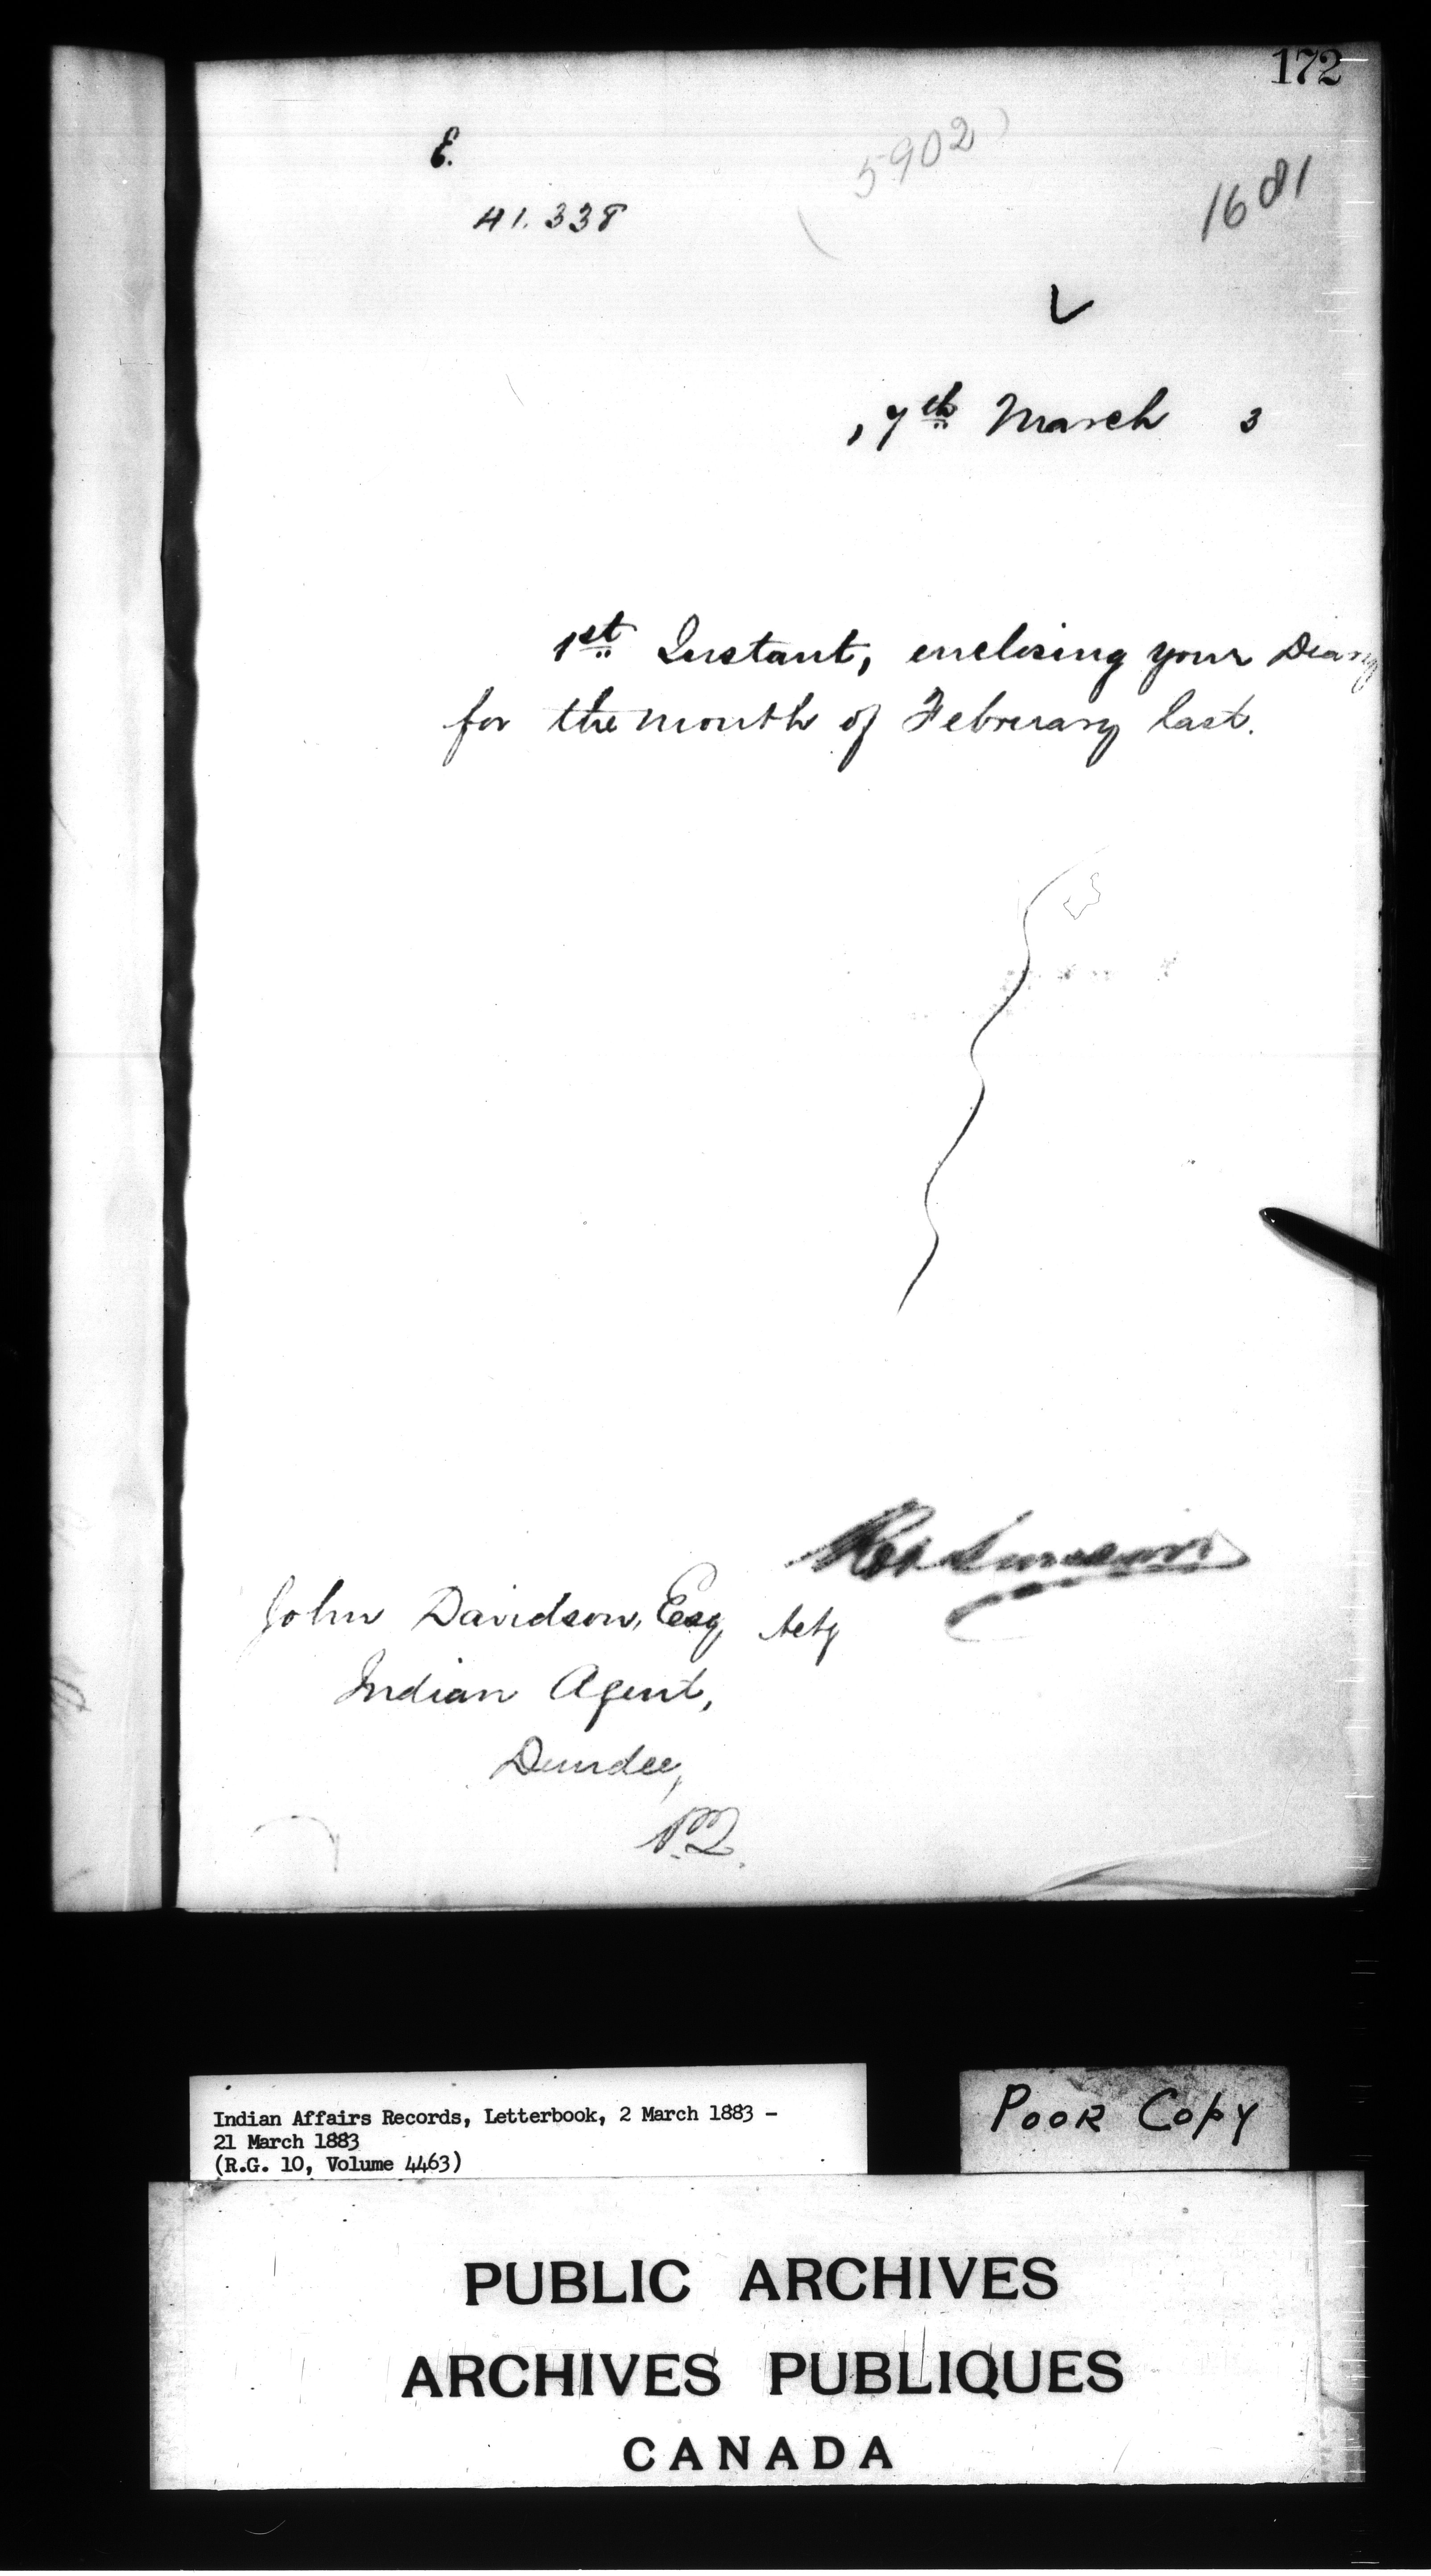 172
E.
(5902)
1681
41.338
, 7th March 3
1st Instant, enclosing your Diary
for the month of February last.
John Davidson, Esq actg
Indian Agent,
Dundee,
P.Q.
Indian Affairs Records, Letterbook, 2 March 1883 -
21 March 1883
(R.G. 10, Volume 4463)
POOR COPY
PUBLIC ARCHIVES
ARCHIVES PUBLIQUES
CANADA